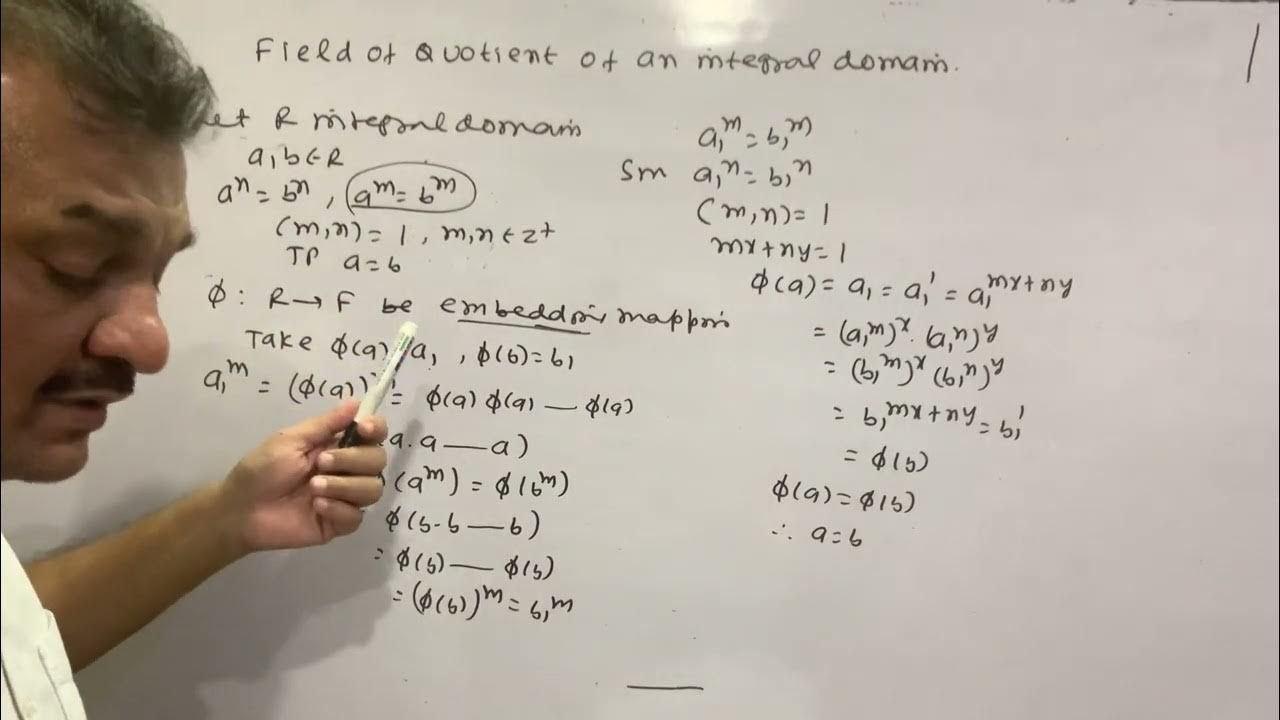 Field of Quotient of an integral domain.
Let R integral domain
a, b ∈ R
aⁿ = bⁿ , aᵐ = bᵐ
(m,n) = 1 , m,n ∈ Z⁺
TP a = b
ϕ : R → F be embedding mapping
Take ϕ(a) a₁ , ϕ(b) = b₁
a₁ᵐ = (ϕ(a)) = ϕ(a) ϕ(a) — ϕ(a)
a.a — a)
(aᵐ) = ϕ(bᵐ)
ϕ(b.b — b)
= ϕ(b) — ϕ(b)
= (ϕ(b))ᵐ = b₁ᵐ
a₁ᵐ = b₁ᵐ
Sm a₁ⁿ = b₁ⁿ
(m,n) = 1
mx + ny = 1
ϕ(a) = a₁ = a₁¹ = a₁ᵐˣ⁺ⁿʸ
= (a₁ᵐ)ˣ . (a₁ⁿ)ʸ
= (b₁ᵐ)ˣ (b₁ⁿ)ʸ
= b₁ᵐˣ⁺ⁿʸ = b₁¹
= ϕ(b)
ϕ(a) = ϕ(b)
∴ a = b